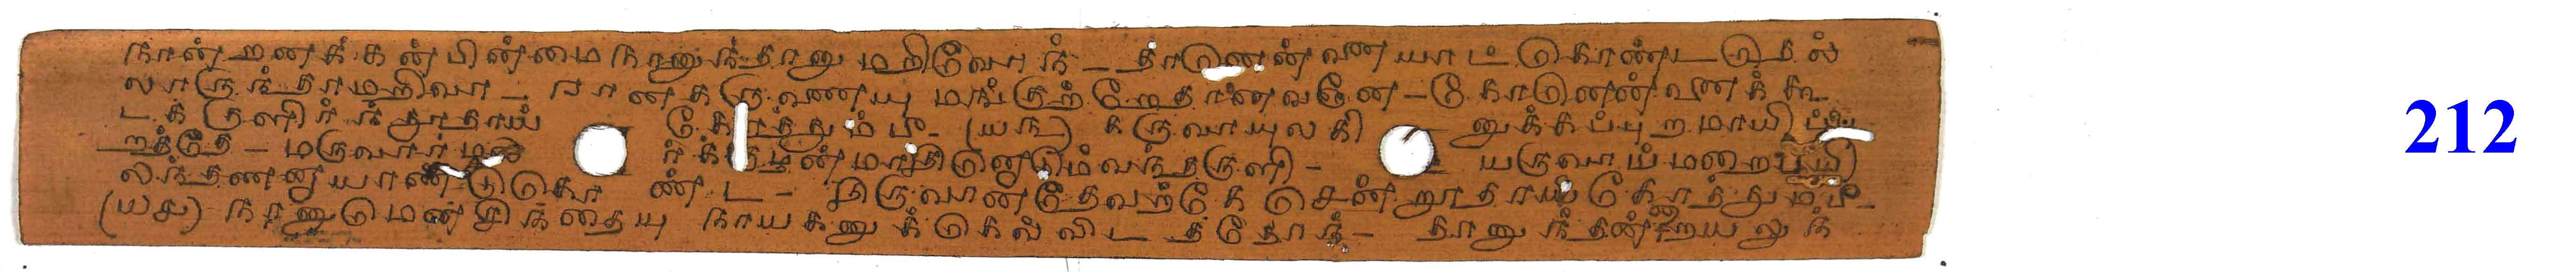 நான்றனக்கன்பின்மை நானுந்தானு மறிவோந் - தானென்னையாட்கொண்டதெல்
லாருந்தாமறிவர் - ஆனகருணையு மங்குற்றேதானவனே - கோனென்னைக்கூ
டக்குளிர்ந்தூதாய் கோத்தும்பீ - (யஎ) கருவாயுலகி னுக்கப்புறமாயிப்பு
றத்தே - மருவார்மலர்க்குழன்மாதினொடும்வந்தருளி - யருவாய்மறைபயி
லந்தணனாயாண்டுகொண்ட - திருவானதேவற்கே சென்றூதாய் கோத்தும்பீ -
(யஅ) நானுமென்சிந்தையு நாயகனுக்கெவ்விடத்தோந் - தானுந்தன்றையலுந்
212